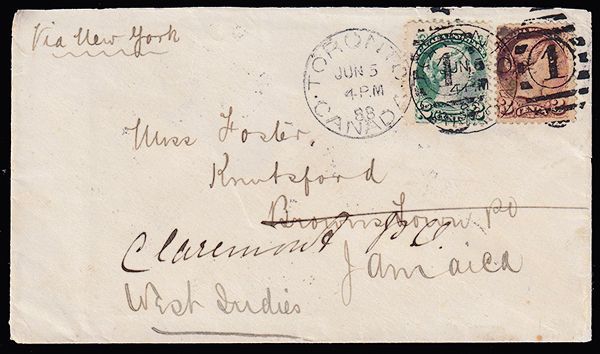 Via New York
TORONTO
JUN 5
4-P.M
88
CANADA
1
1
Miss Foster,
Knutsford
Brownstown PO
Claremont P.O.
Jamaica
West Indies